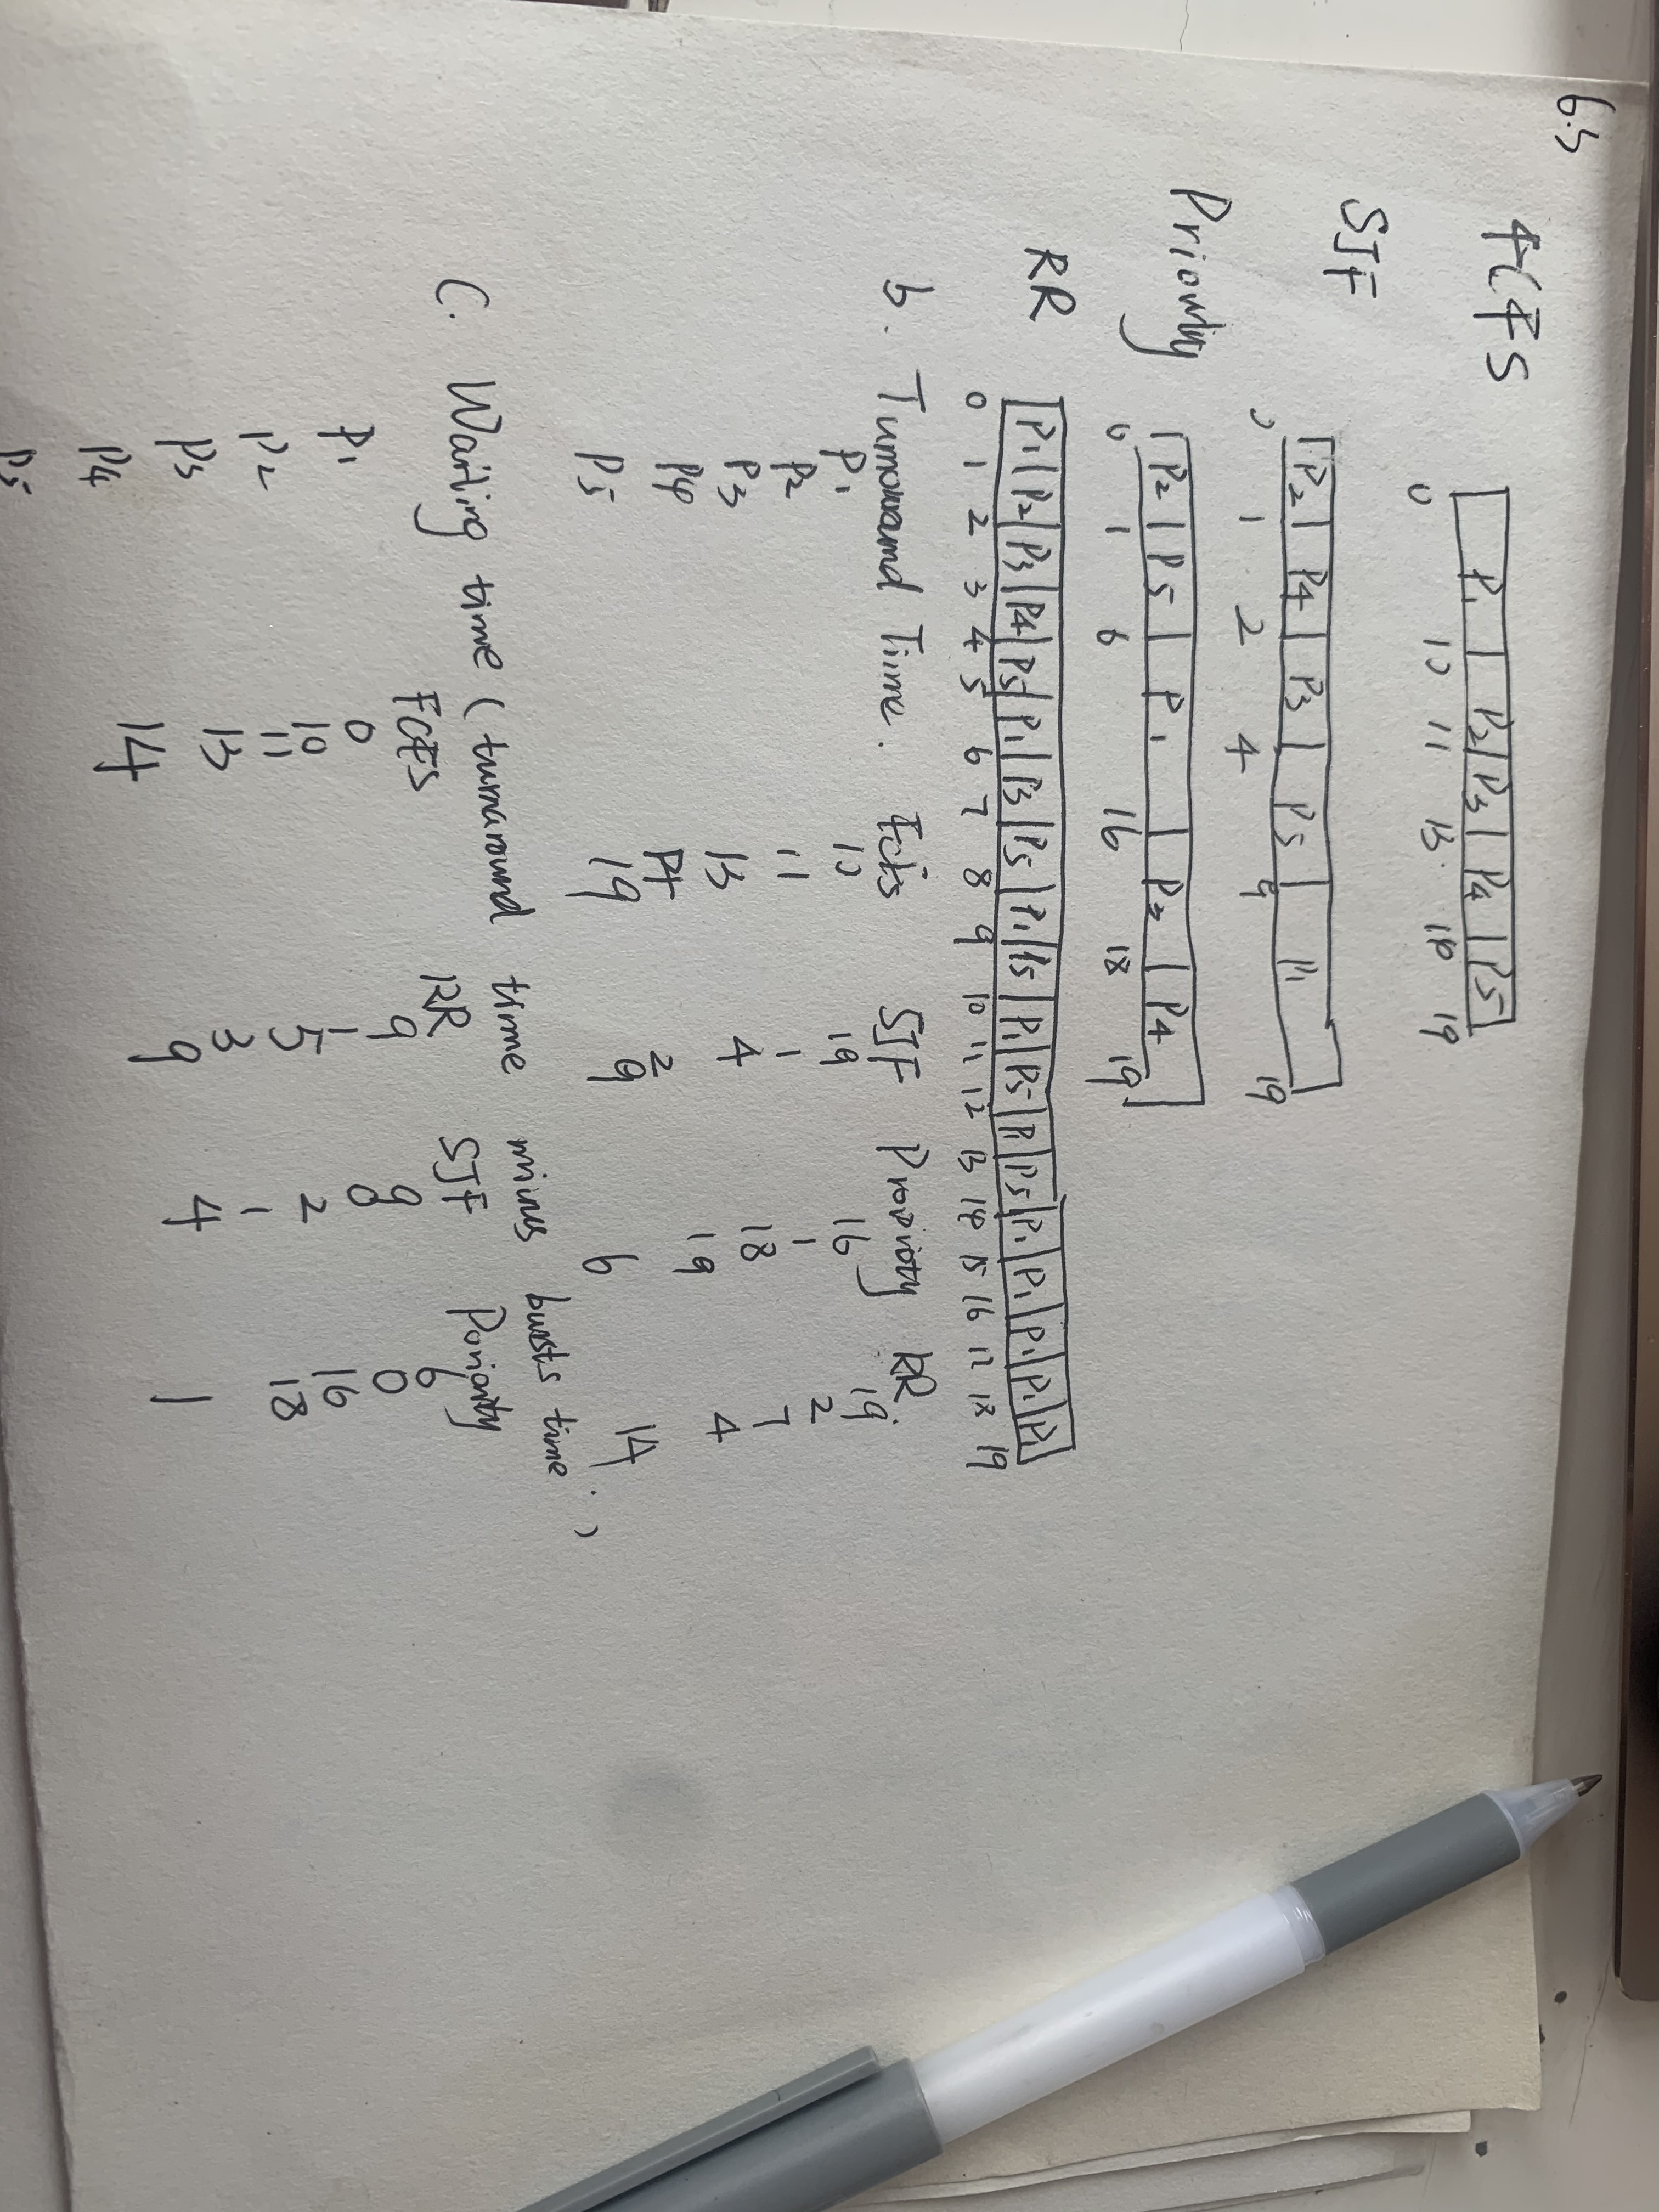 6.3
FCFS P1 P2 P3 P4 P5
0 10 11 13 14 19
SJF P2 P4 P3 P5 P1
0 1 2 4 9 19
Priority P2 P5 P1 P3 P4
0 1 6 16 18 19
RR P1 P2 P3 P4 P5 P1 P3 P5 P1 P5 P1 P5 P1 P5 P1 P1 P1 P1 P1
0 1 2 3 4 5 6 7 8 9 10 11 12 13 14 15 16 17 18 19
b. Turnoramd Time. Fcfs SJF Prority RR
P1 10 19 16 19
P2 11 1 1 2
P3 13 4 18 7
P4 14 2 19 4
P5 19 9 6 14
C. Waiting time (turnaround time minus bursts time.)
FCFS RR SJF Poriority
P1 0 9 9 6
P2 10 1 0 0
P3 11 5 2 16
P4 13 3 1 18
P5 14 9 4 1